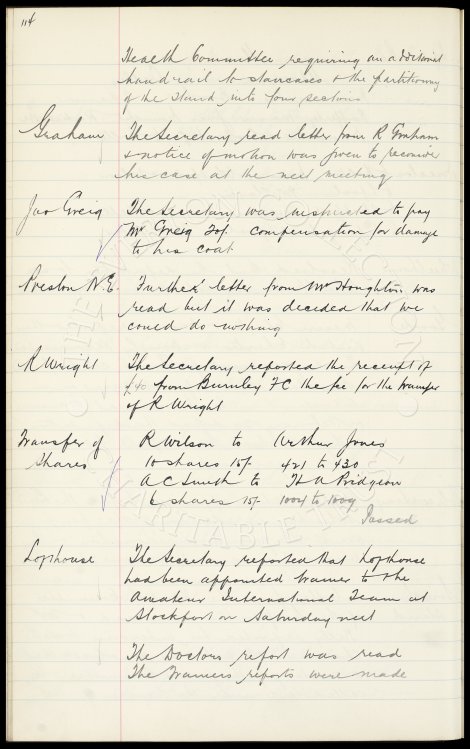 114
Health Committee requiring an additional
hand rail to staircases & the partitioning
of the Stand into four sections
Graham The Secretary read letter from R Graham
& notice of motion was given to reconsider
his case at the next meeting
Jas Greig The Secretary was instructed to pay
Mr Greig compensation for damage
to his coat
Preston N.E. Further letter from Mr Houghton was
read but it was decided that we
could do nothing
R Wright The Secretary reported the receipt of
from Burnley FC the fee for the transfer
of R Wright
Transfer of R Wilson to Arthur Jones
Shares 10 shares 15/- 421 to 430
A C Smith to H A Pridgeon
6 shares 15/- 1004 to 1009
Passed
Lofthouse The Secretary reported that Lofthouse
had been appointed trainer to the
Amateur International Team at
Stockport on Saturday next
The Doctors report was read
The Trainers reports were made